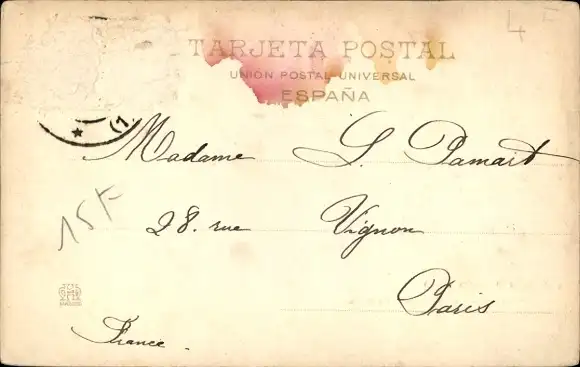 4 F
TARJETA POSTAL
UNIÓN POSTAL UNIVERSAL
ESPAÑA
(1
Madame S. Pamart
15F
28. rue Vignon
Paris
France.